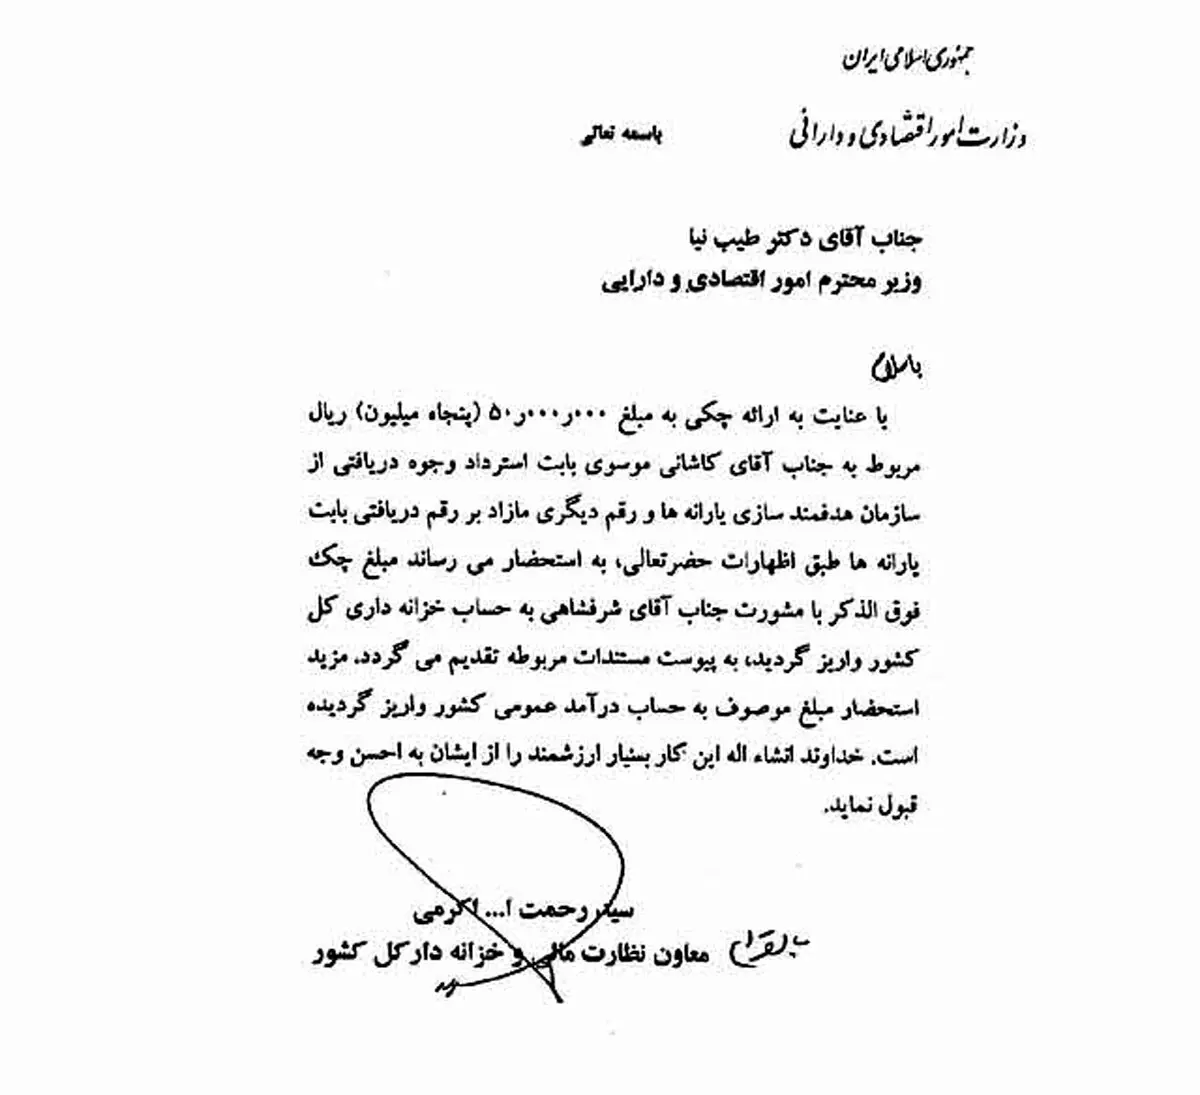 جمهوری اسلامی ایران
وزارت امور اقتصادی و دارائی
باسمه تعالی
جناب آقای دکتر طیب نیا
وزیر محترم امور اقتصادی و دارایی
باسلام
با عنایت به ارائه چکی به مبلغ ۵۰٫۰۰۰٫۰۰۰ (پنجاه میلیون) ریال
مربوط به جناب آقای کاشانی موسوی بابت استرداد وجوه دریافتی از
سازمان هدفمند سازی یارانه ها و رقم دیگری مازاد بر رقم دریافتی بابت
یارانه ها طبق اظهارات حضرتعالی، به استحضار می رساند مبلغ چک
فوق الذکر با مشورت جناب آقای شرفشاهی به حساب خزانه داری کل
کشور واریز گردید، به پیوست مستندات مربوطه تقدیم می گردد. مزید
استحضار مبلغ موصوف به حساب درآمد عمومی کشور واریز گردیده
است. خداوند انشاء اله این کار بسیار ارزشمند را از ایشان به احسن وجه
قبول نماید.
سید رحمت ا... اکرمی
معاون نظارت مالی و خزانه دار کل کشور